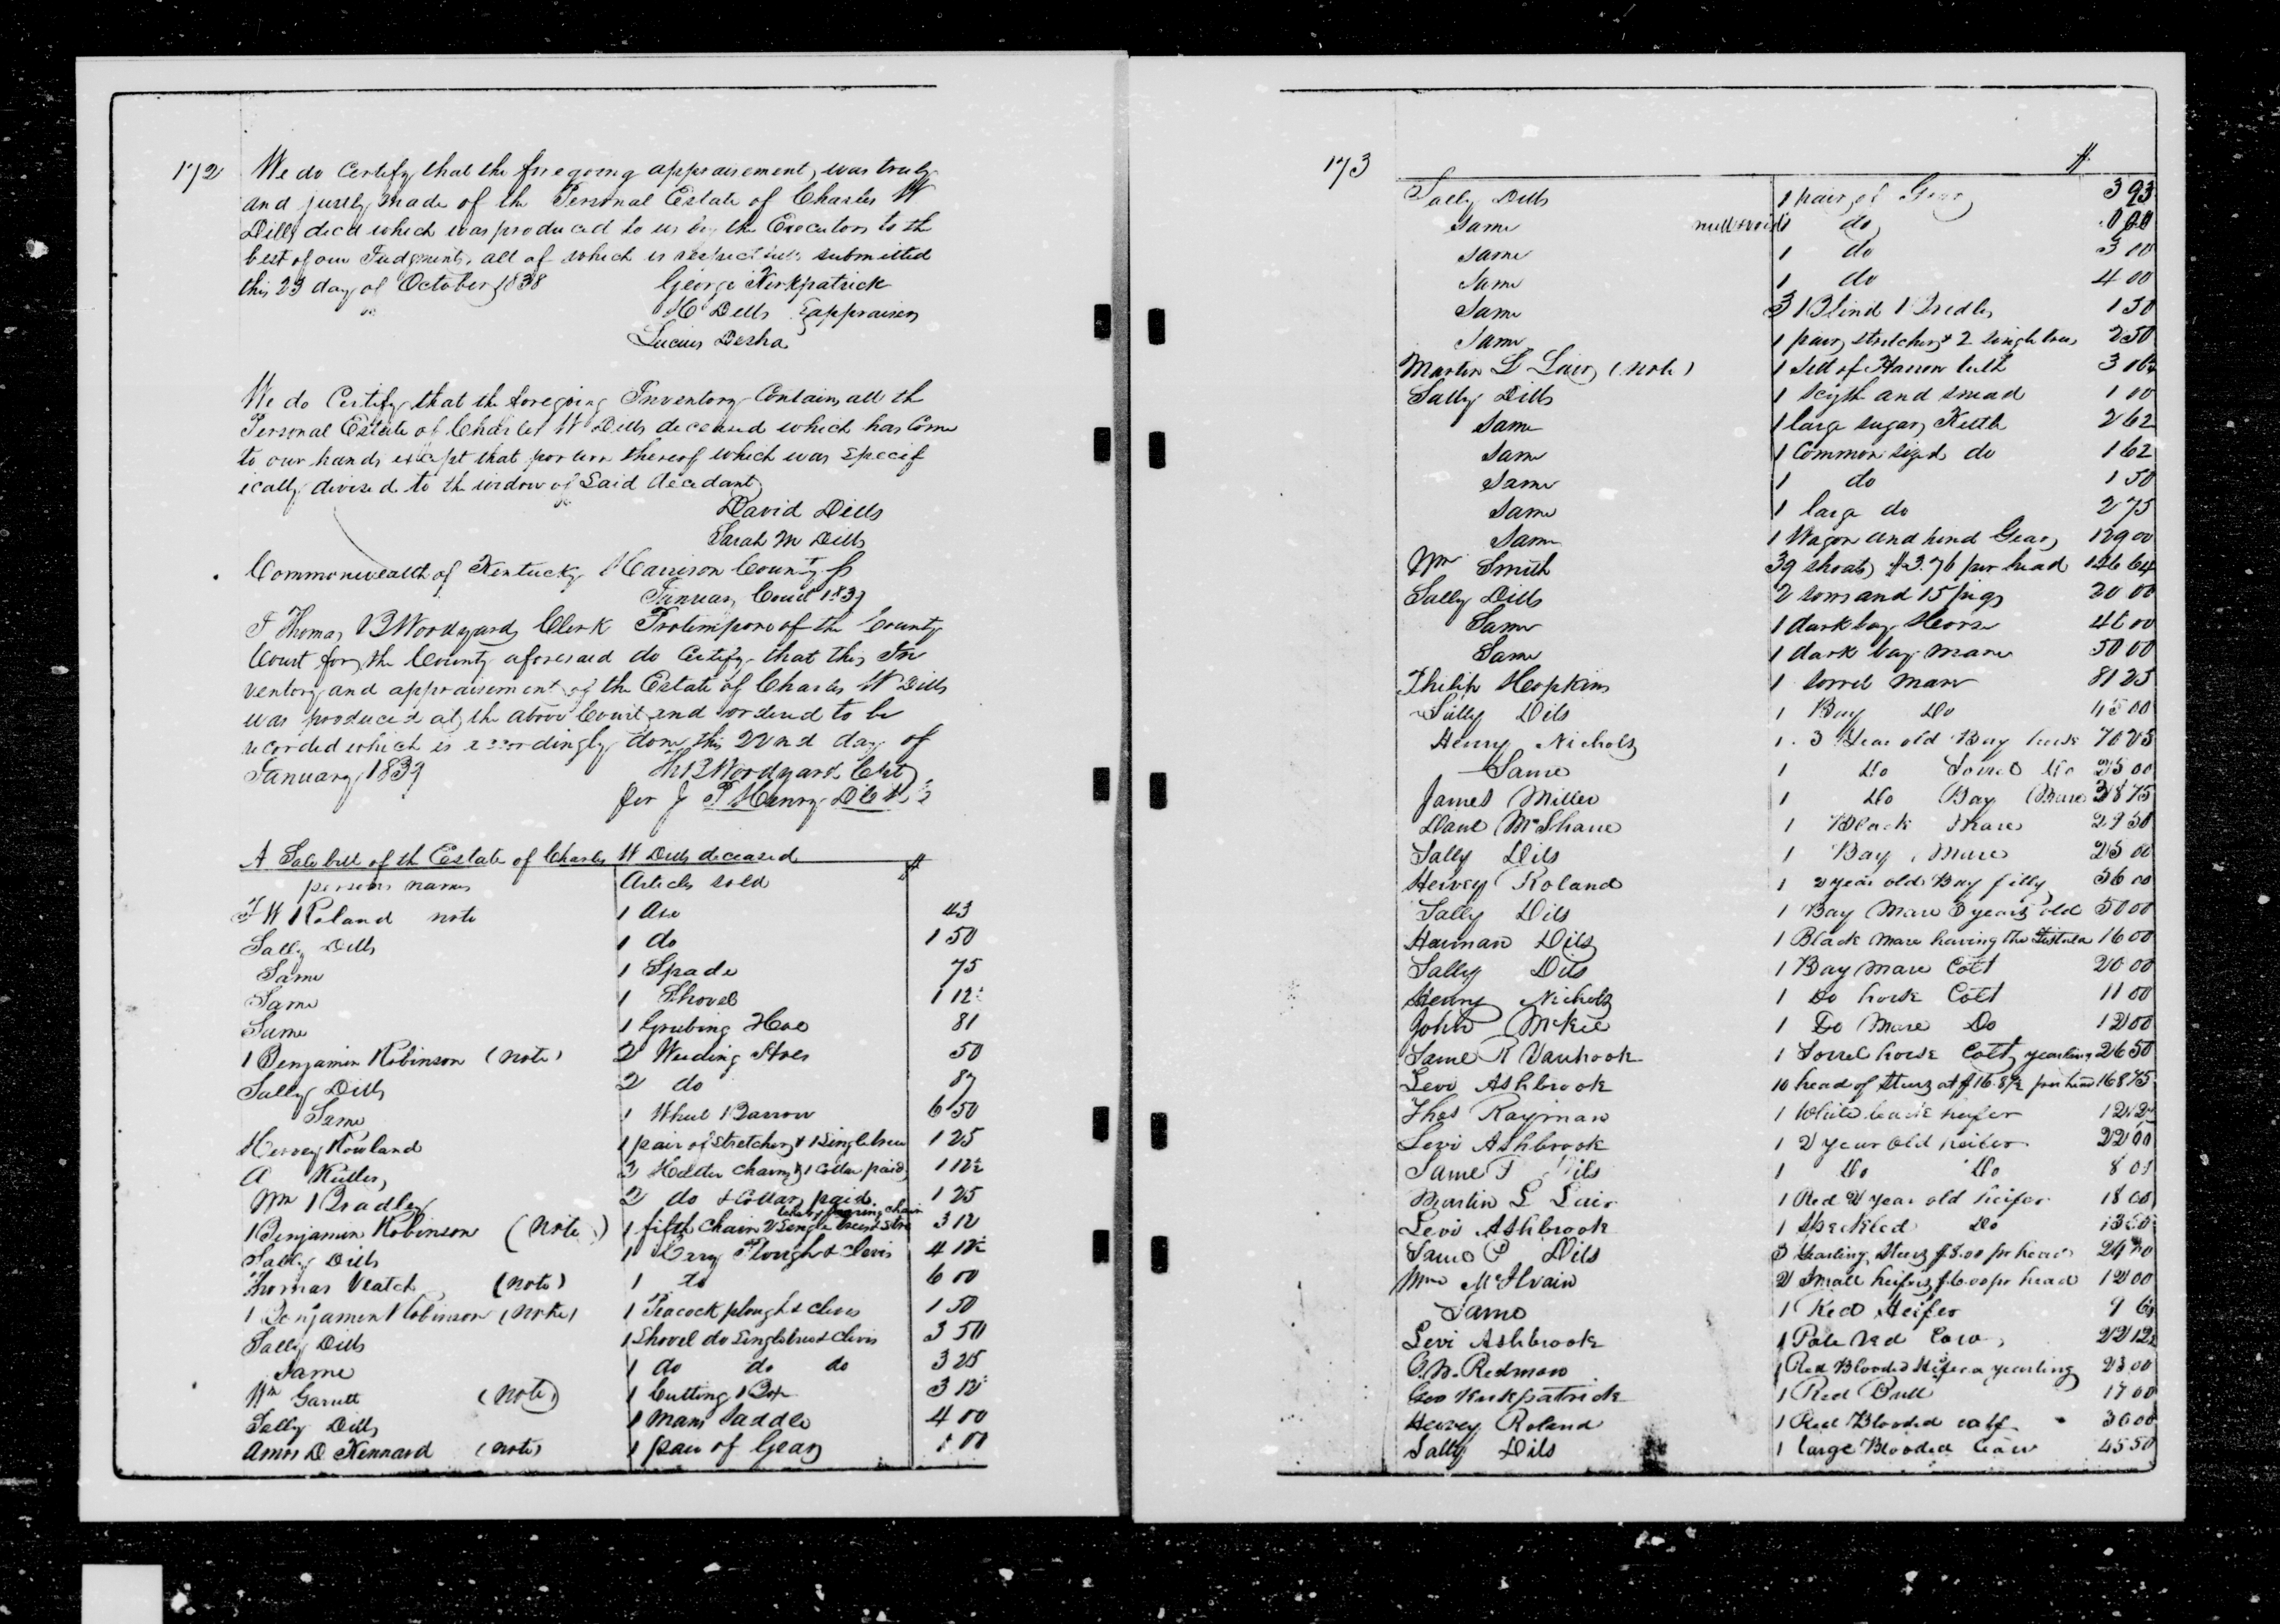 172
We do Certify that the foregoing appraisement, was truly
and justly made of the Personal Estate of Charles W
Dills decd which was produced to us by the Executors to the
best of our Judgments, all of which is respectfully submitted
this 23 day of October 1838 George Kirkpatrick
H Dills appraisers
Lucius Desha
We do Certify that the foregoing Inventory Contains all th
Personal Estate of Charles W Dills deceased which has Come
to our hands except that portion thereof which was Specif
ically devised to the widow of Said decedant
David Dills
Sarah M Dills
Commonwealth of Kentucky Harrison County Sc
January Court 1839
I Thomas B Woodyard Clerk Protempore of the County
Court for the County aforesaid do Certify that this In
ventory and appraisement of the Estate of Charles W Dills
was produced at the above Court and ordered to be
recorded which is accordingly done this 22nd day of
January 1839 Th B Woodyard Clk
for J P Henry
A Sale bill of th Estate of Charles W Dills deceased $
persons names Articles sold
W Roland note 1 Axe 43
Sally Dills 1 do 1 50
Same 1 Spade 75
Same 1 Shovel 1 12½
Same 1 Grubing Hoe 81
Benjamin Robinson (note) 2 Weeding Hoes 50
Sally Dills 2 do 87
Same 1 Wheel Barrow 6 50
Hervey Rowland 1 pair of Stretchers & 1 Singletree 1 25
A Keller 2 Halter Chains & 1 Collar paid 1 12½
Wm Bradley 2 do & Collars paid 1 25
Benjamin Robinson (Note) 1 fifth Chain 2 Single trees 3 12
Sally Dills 1 Cary Plough & Clevis 4 12½
Thomas Veatch (note) 1 do 6 00
Benjamin Robinson (note) 1 Peacock plough & Clevis 1 50
Sally Dills 1 Shovel do Singletree & Clevis 3 50
Same 1 do do do 3 25
Wm Garnett (note) 1 Cutting Box 3 12½
Sally Dills 1 Mans Saddle 4 00
Amos D Kennard (note) 1 pair of Gears 1 00
173 $
Sally Dills 1 pair of Gears 3 93
Same do
Same 1 do 3 00
Same 1 do 4 00
Same 3 Blind Bridles 1 50
Same 1 pair stretchers & 2 Singletrees 2 50
Martin L Lair (note) 1 Sett of Harrow teeth 3 06¼
Sally Dills 1 Scyth and snead 1 00
Same 1 large sugar Kettle 2 62
Same 1 Common sized do 1 62
Same 1 do 1 50
Same 1 large do 2 75
Same 1 Wagon and hind Gears 129 00
Wm Smith 39 shoats $3.76 per head 146 64
Sally Dills 2 sows and 15 pigs 20 00
Same 1 dark bay Horse 46 00
Same 1 dark bay mare 50 00
Philip Hopkins 1 Sorrel mare 81 25
Sally Dils 1 Bay Do 45 00
Henry Nichols 1 3 Year old Bay horse 70 25
Same 1 Do Sorrel Do 25 00
James Miller 1 Do Bay Mare 38 75
Danl McShane 1 Black Mare 29 50
Sally Dils 1 Bay Mare 25 00
Hervey Roland 1 2 year old Bay filly 36 00
Sally Dils 1 Bay Mare 3 years old 50 00
Harman Dils 1 Black Mare having the Fistula 16 00
Sally Dils 1 Bay Mare Colt 20 00
Henry Nichols 1 Do horse Colt 11 00
John McKee 1 Do Mare Do 12 00
Same R Vanhook 1 Sorrel horse Colt yearling 26 50
Levi Ashbrook 10 head of Steers at $16.87½ per head 168 75
Thos Rayman 1 White back heifer 12 12½
Levi Ashbrook 1 2 year old heifer 22 00
Same Dils 1 Do Do 8 01
Martin L Lair 1 Red 2 year old heifer 18 00
Levi Ashbrook 1 Speckled Do 13 50
Same P Dils 3 Yearling Steers $8.00 pr head 24 00
Wm McIlvain 2 Small heifers $6.00 pr head 12 00
Same 1 Red Heifer
Levi Ashbrook 1 Pale red Cow 22 12½
G.W. Redmon 1 Red Blooded Heifer a yearling 23 00
Geo Kirkpatrick 1 Red Bull 17 00
Hervey Roland 1 Red Blooded calf 30 00
Sally Dils 1 large Blooded Cow 45 50